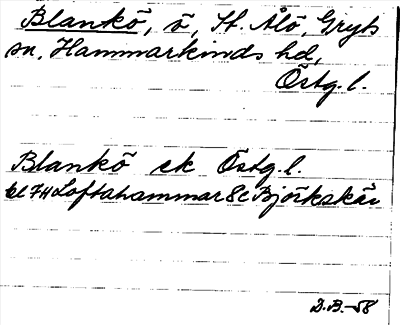 Blankö, ö, St. Ålö, Gryts
sn, Hammarkinds hd,
Östg. l.
Blankö ek Östg. l.
bl 7H Loftahammar 8c Björkskär
D.B.-58